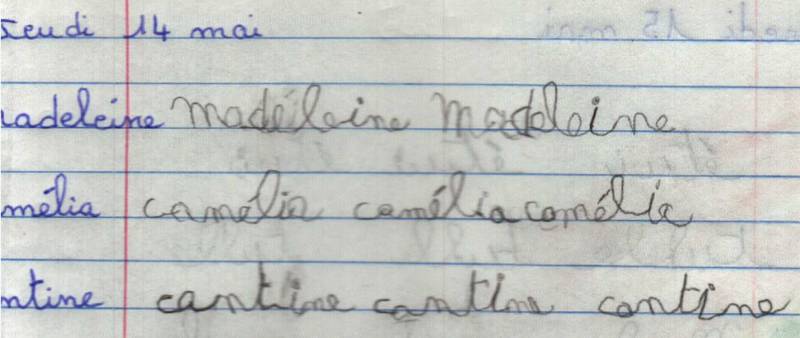 Jeudi 14 mai
adeleine madeleine madeleine
mélia camélia camélia camélia
ntine cantine cantine cantine